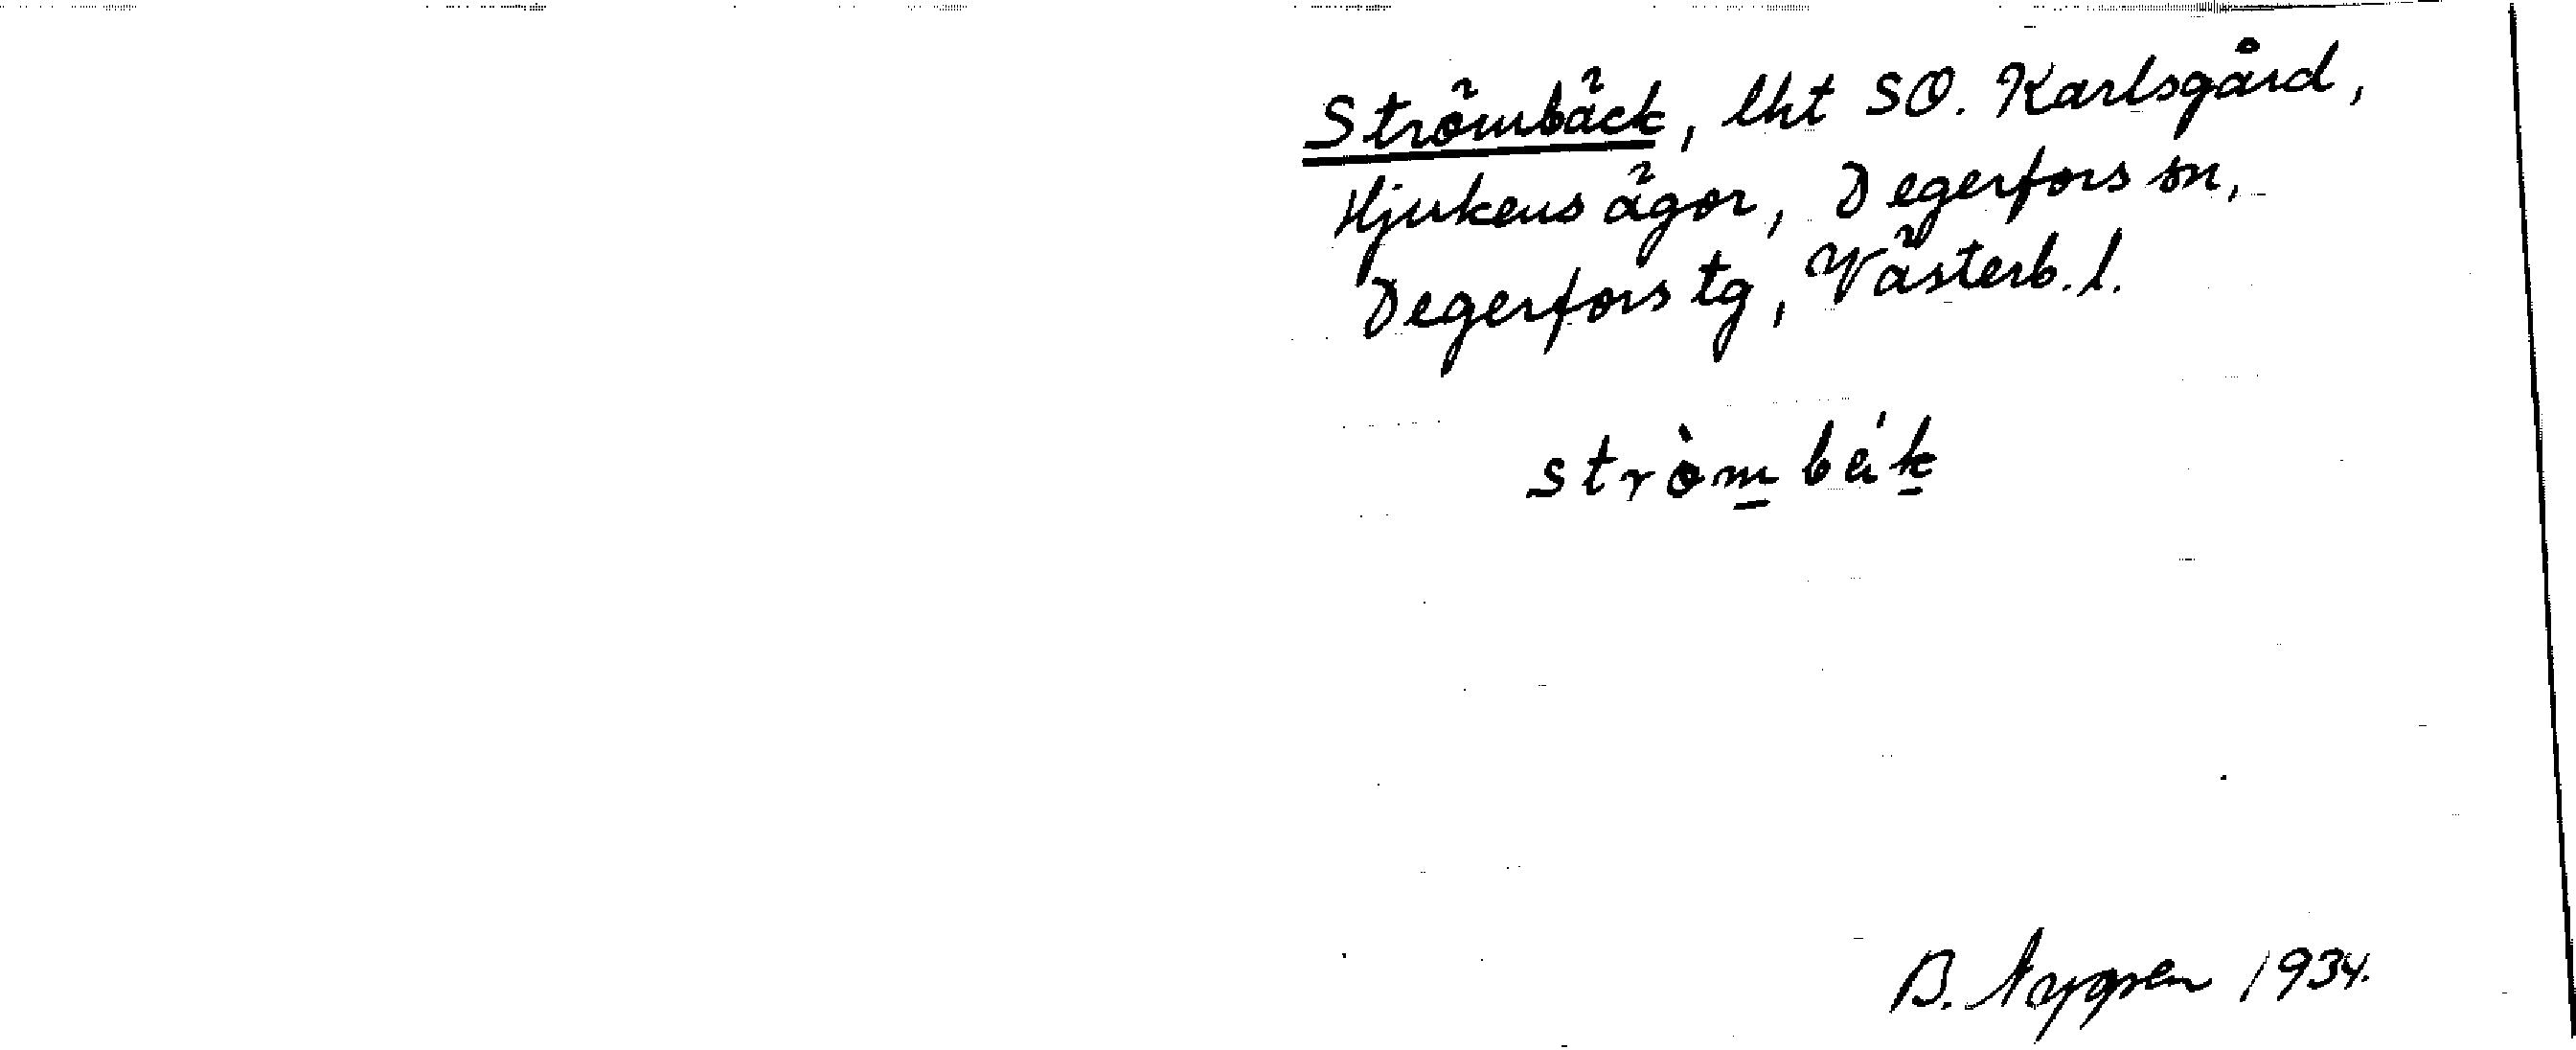 Strömbäck, lht SO. Karlsgård,
Hjukens ägor, Degerfors sn,
Degerfors tg, Västerb. l.
stròm bä́k
1934.